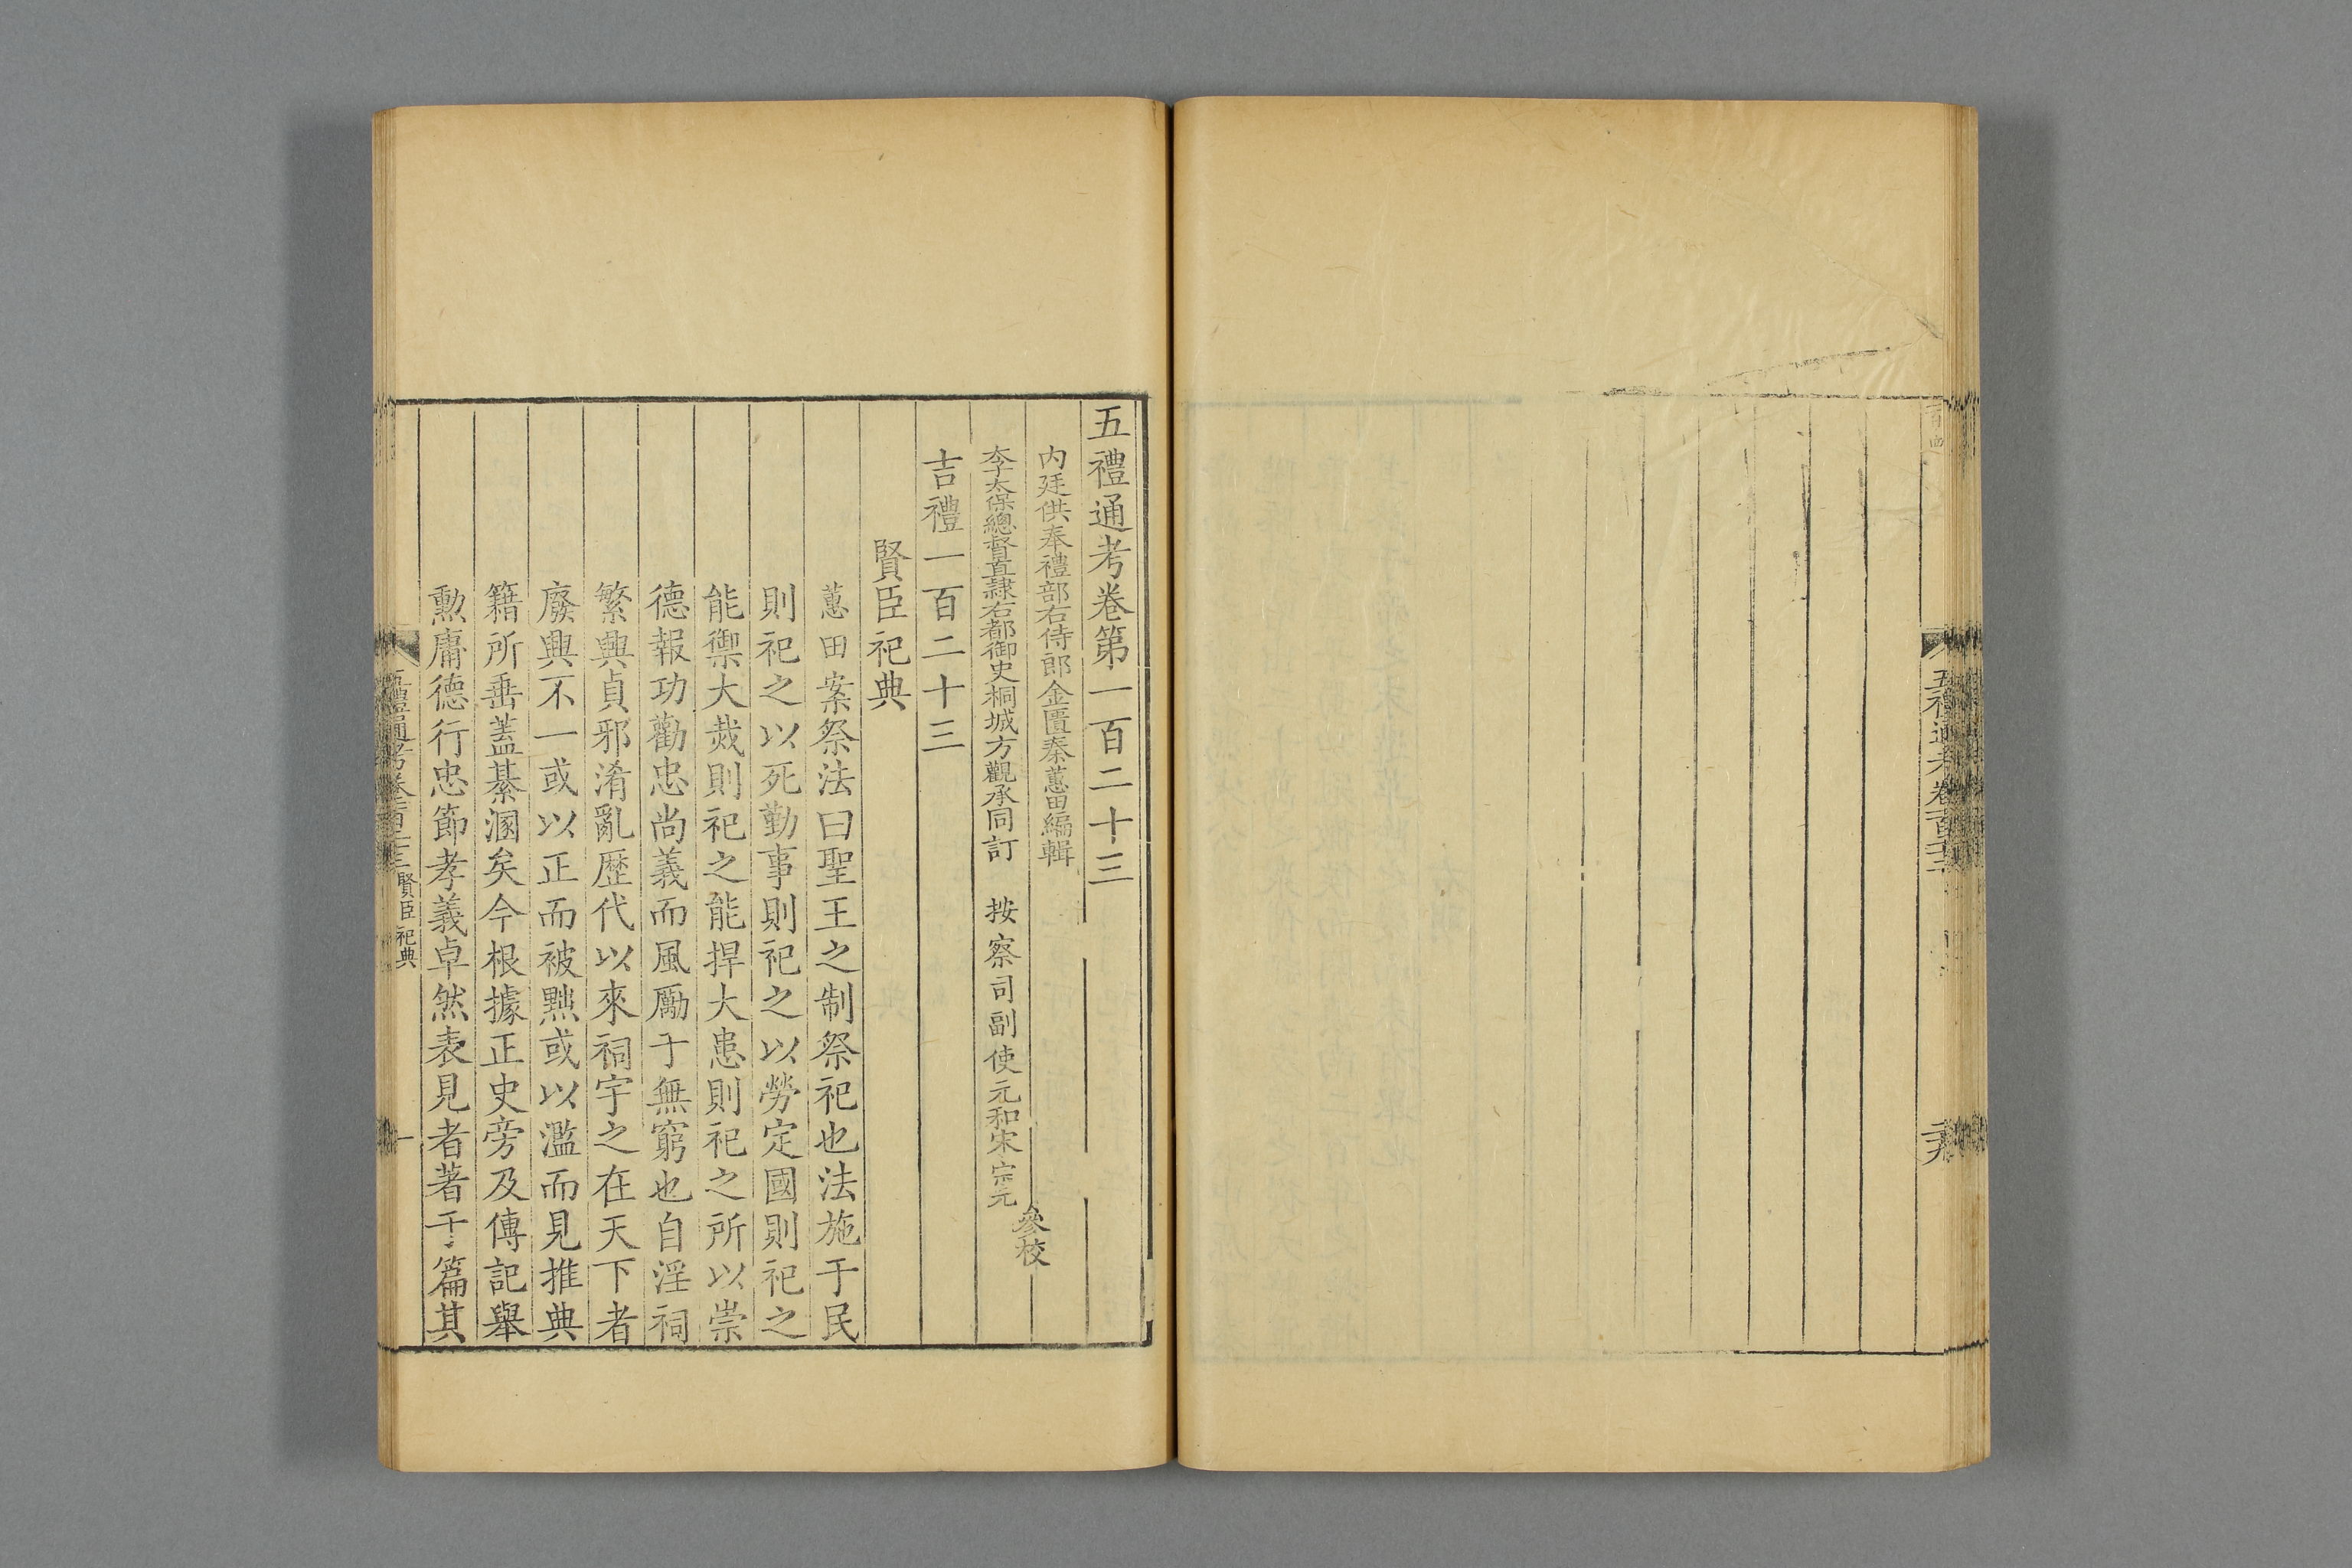 五禮通考卷百二十二
五禮通考卷第一百二十三
內廷供奉禮部右侍郎金匱秦蕙田編輯
太子太保總督直隸右都御史桐城方觀承同訂
按察司副使元和宋宗元
參校
吉禮一百二十三
賢臣祀典
蕙田案祭法曰聖王之制祭祀也法施于民
則祀之以死勤事則祀之以勞定國則祀之
能禦大烖則祀之能捍大患則祀之所以崇
德報功勸忠尚義而風厲于無窮也自淫祠
繁興貞邪淆亂歷代以來祠宇之在天下者
廢興不一或以正而被黜或以濫而見推典
籍所垂蓋綦溷矣今根據正史旁及傳記舉
勲庸德行忠節孝義卓然表見者著于篇其
五禮通考卷一百二十三 賢臣祀典
一